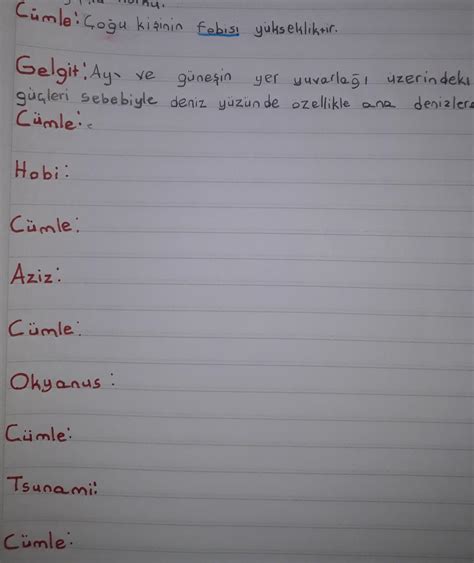 Cümle: Çoğu kişinin fobisi yüksekliktir.
Gelgit: Ay ve güneşin yer yuvarlağı üzerindeki
güçleri sebebiyle deniz yüzünde özellikle ana denizlerde
Cümle:
Hobi:
Cümle:
Aziz:
Cümle:
Okyanus:
Cümle:
Tsunami:
Cümle: